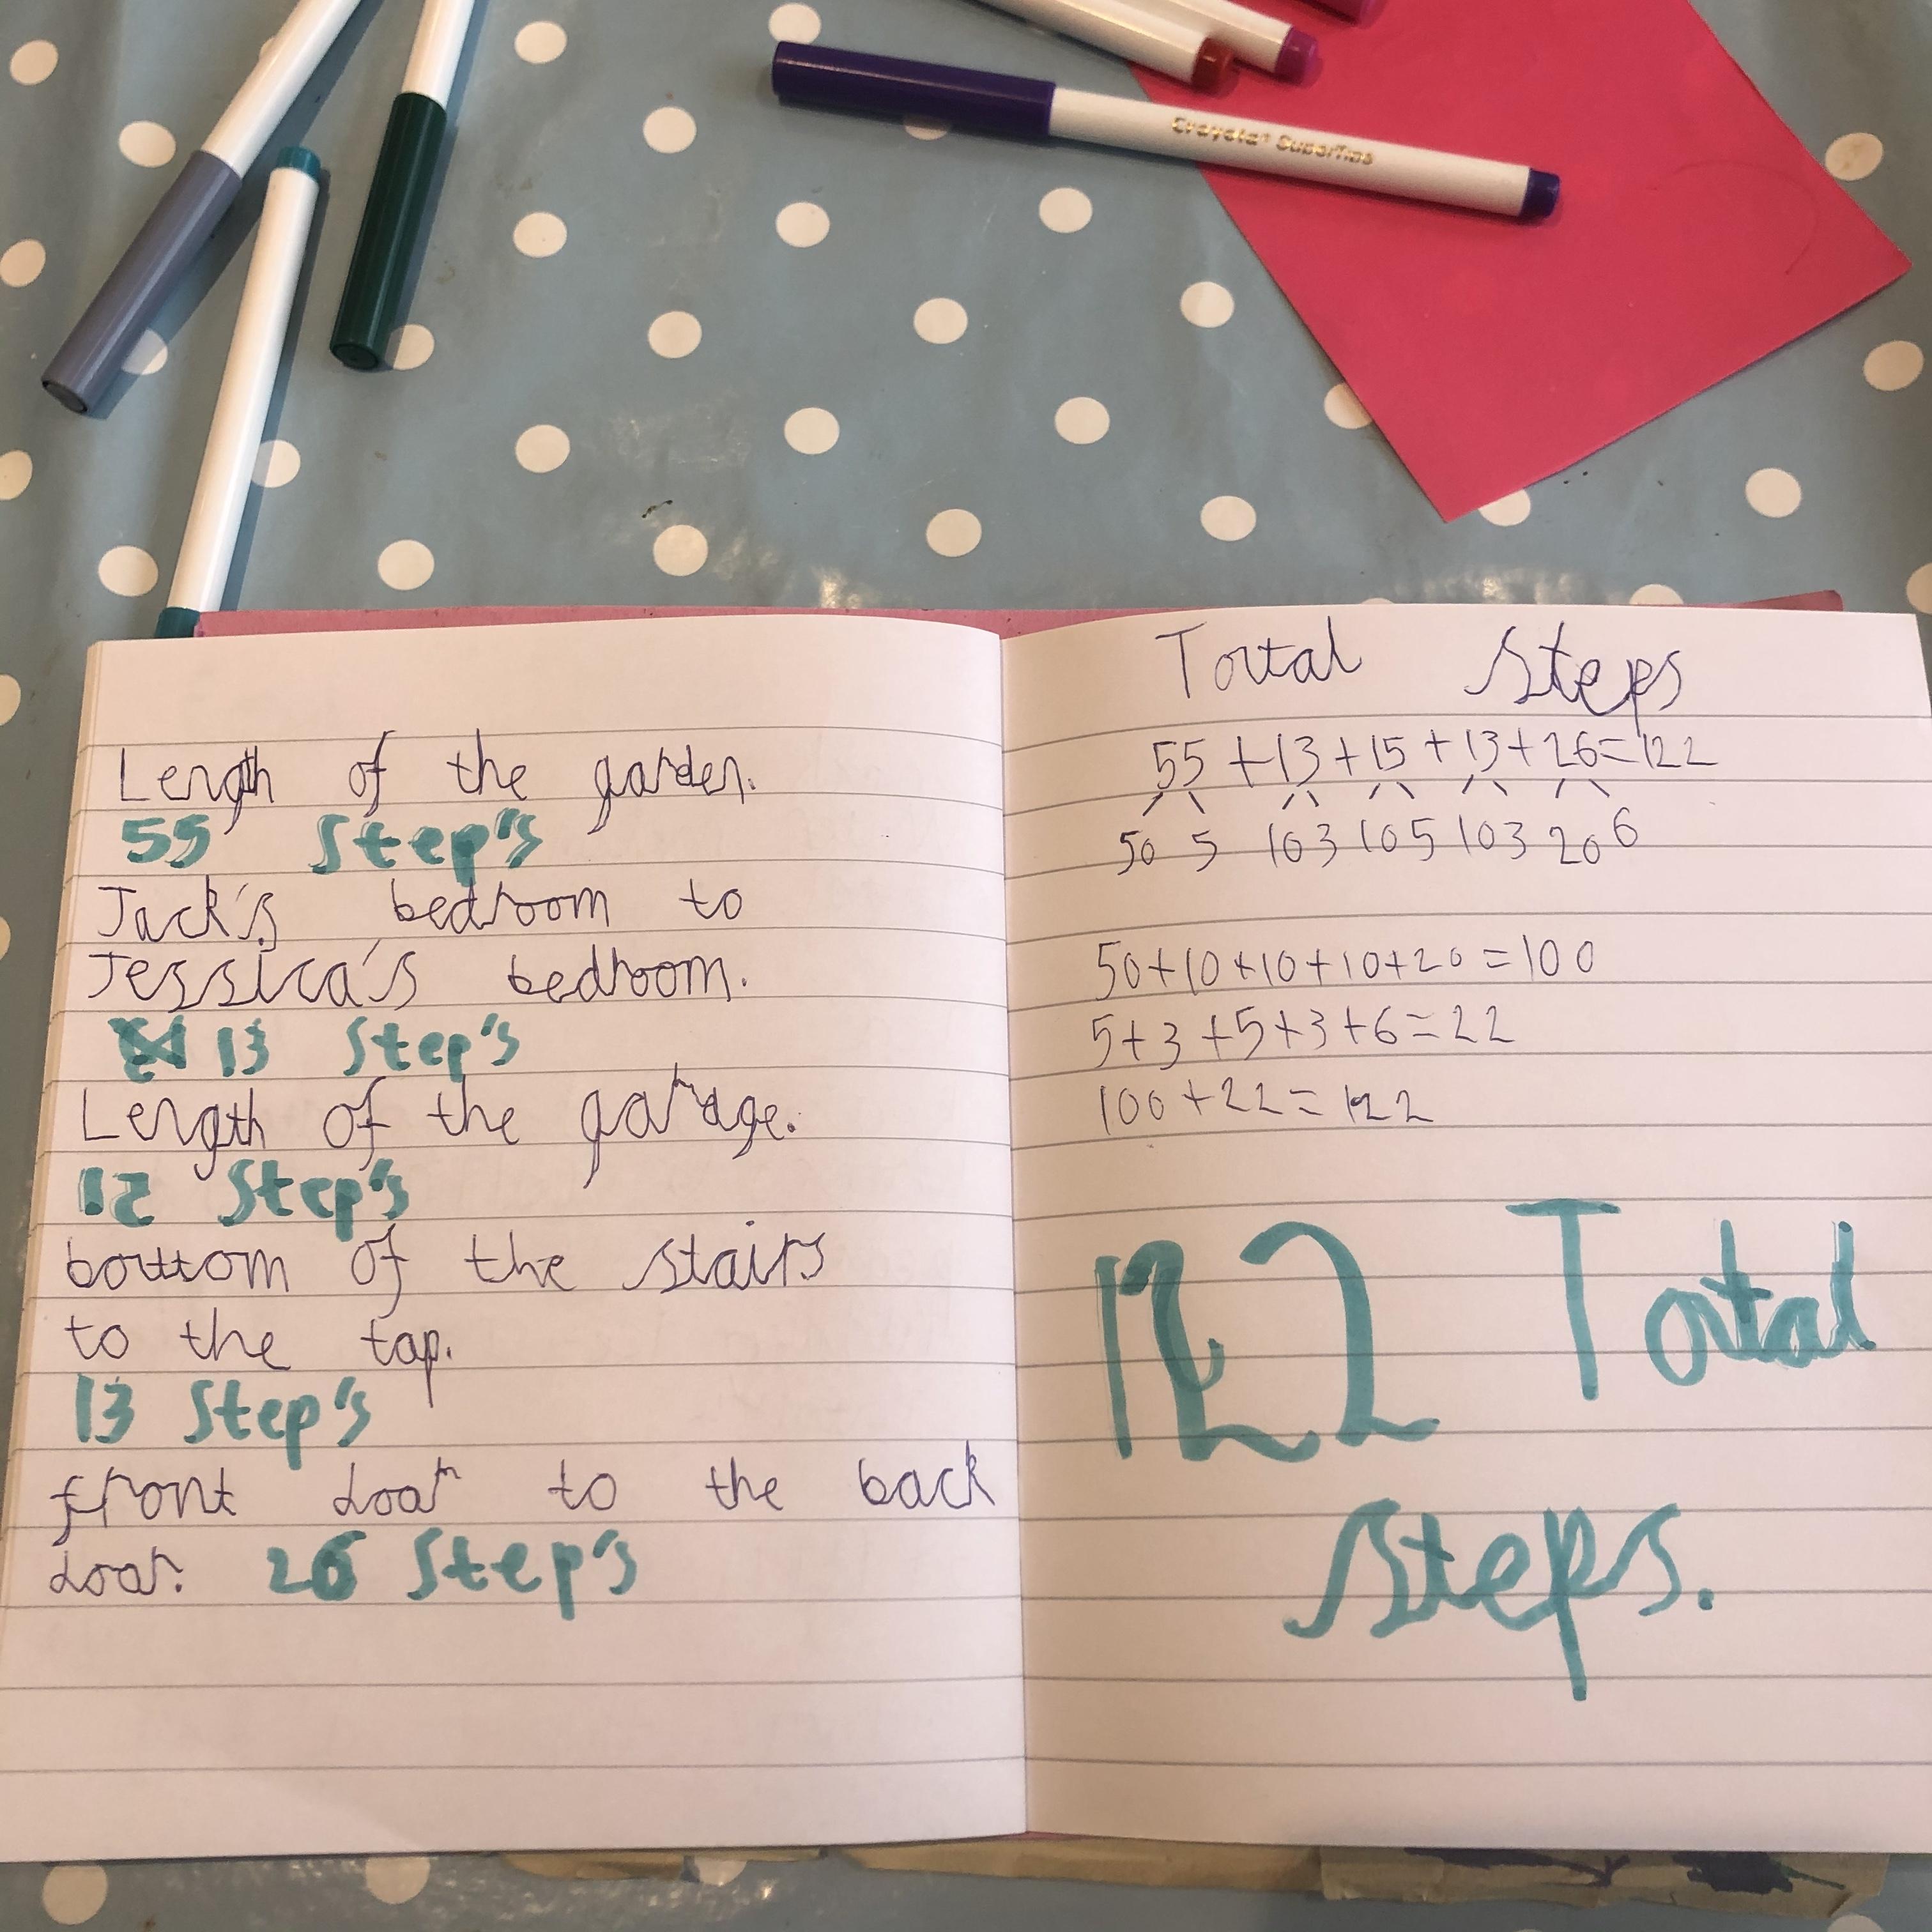 Crayola SuperTips
Length of the garden.
55 Step's
Jack's bedroom to
Jessica's bedroom.
13 Step's
Length of the garage.
12 Step's
bottom of the stairs
to the tap.
13 Step's
front door to the back
door. 26 Step's
Total steps
55 + 13 + 15 + 13 + 26 = 122
50 5 10 3 10 5 10 3 20 6
50+10+10+10+20=100
5+3+5+3+6=22
100+22=122
122 Total
steps.